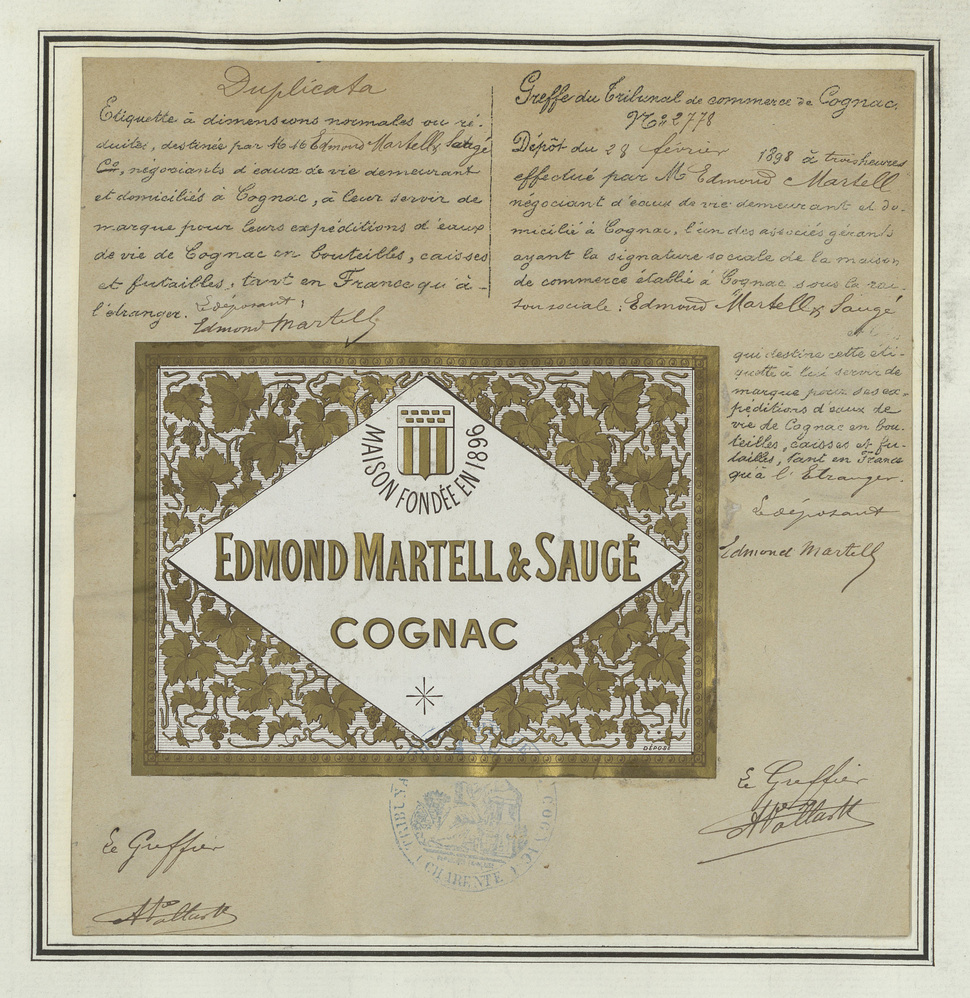 Duplicata
Etiquette à dimensions normales ou ré-
duites, destinée par M. M. Edmond Martell & Saugé
Cie, négociants d'eaux de vie demeurant
et domiciliés à Cognac, à leur servir de
marque pour leurs expéditions d'eaux
de vie de Cognac en bouteilles, caisses
et futailles, tant en France qu'à
l'étranger.
Le déposant,
Edmond Martell
Greffe du Tribunal de commerce de Cognac.
No. 2778
Dépôt du 28 février 1898 à trois heures
effectué par M. Edmond Martell
négociant d'eaux de vie demeurant et do-
micilié à Cognac, l'un des associés gérants
ayant la signature sociale de la maison
de commerce établie à Cognac sous la rai-
son sociale: Edmond Martell & Saugé
qui destine cette éti-
quette à lui servir de
marque pour ses ex-
péditions d'eaux de
vie de Cognac en bou-
teilles, caisses et fu-
tailles, tant en France
qu'à l'Etranger.
Le déposant
Edmond Martell
MAISON FONDÉE EN 1896
EDMOND MARTELL & SAUGÉ
COGNAC
DÉPOSÉ
TRIBUNAL DE COGNAC
CHARENTE
Le Greffier
Le Greffier